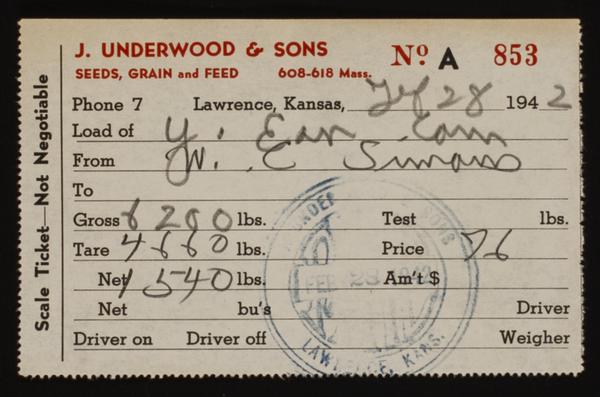 J. UNDERWOOD & SONS
Nº A 853
SEEDS, GRAIN and FEED 608-618 Mass.
Phone 7 Lawrence, Kansas, Feb 28 1942
Load of Y. Ear Corn
From W. E Simons
To
Gross 6200 lbs. Test lbs.
Tare 4660 lbs. Price 76
Net 1540 lbs. Am't $
Net bu's Driver
Driver on Driver off Weigher
Scale Ticket—Not Negotiable
FEB 28 1942
LAWRENCE, KANS.